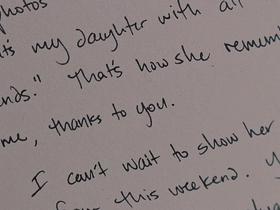 photos
it's my daughter with all
." That's how she
me, thanks to you.
I can't wait to show her
this weekend.